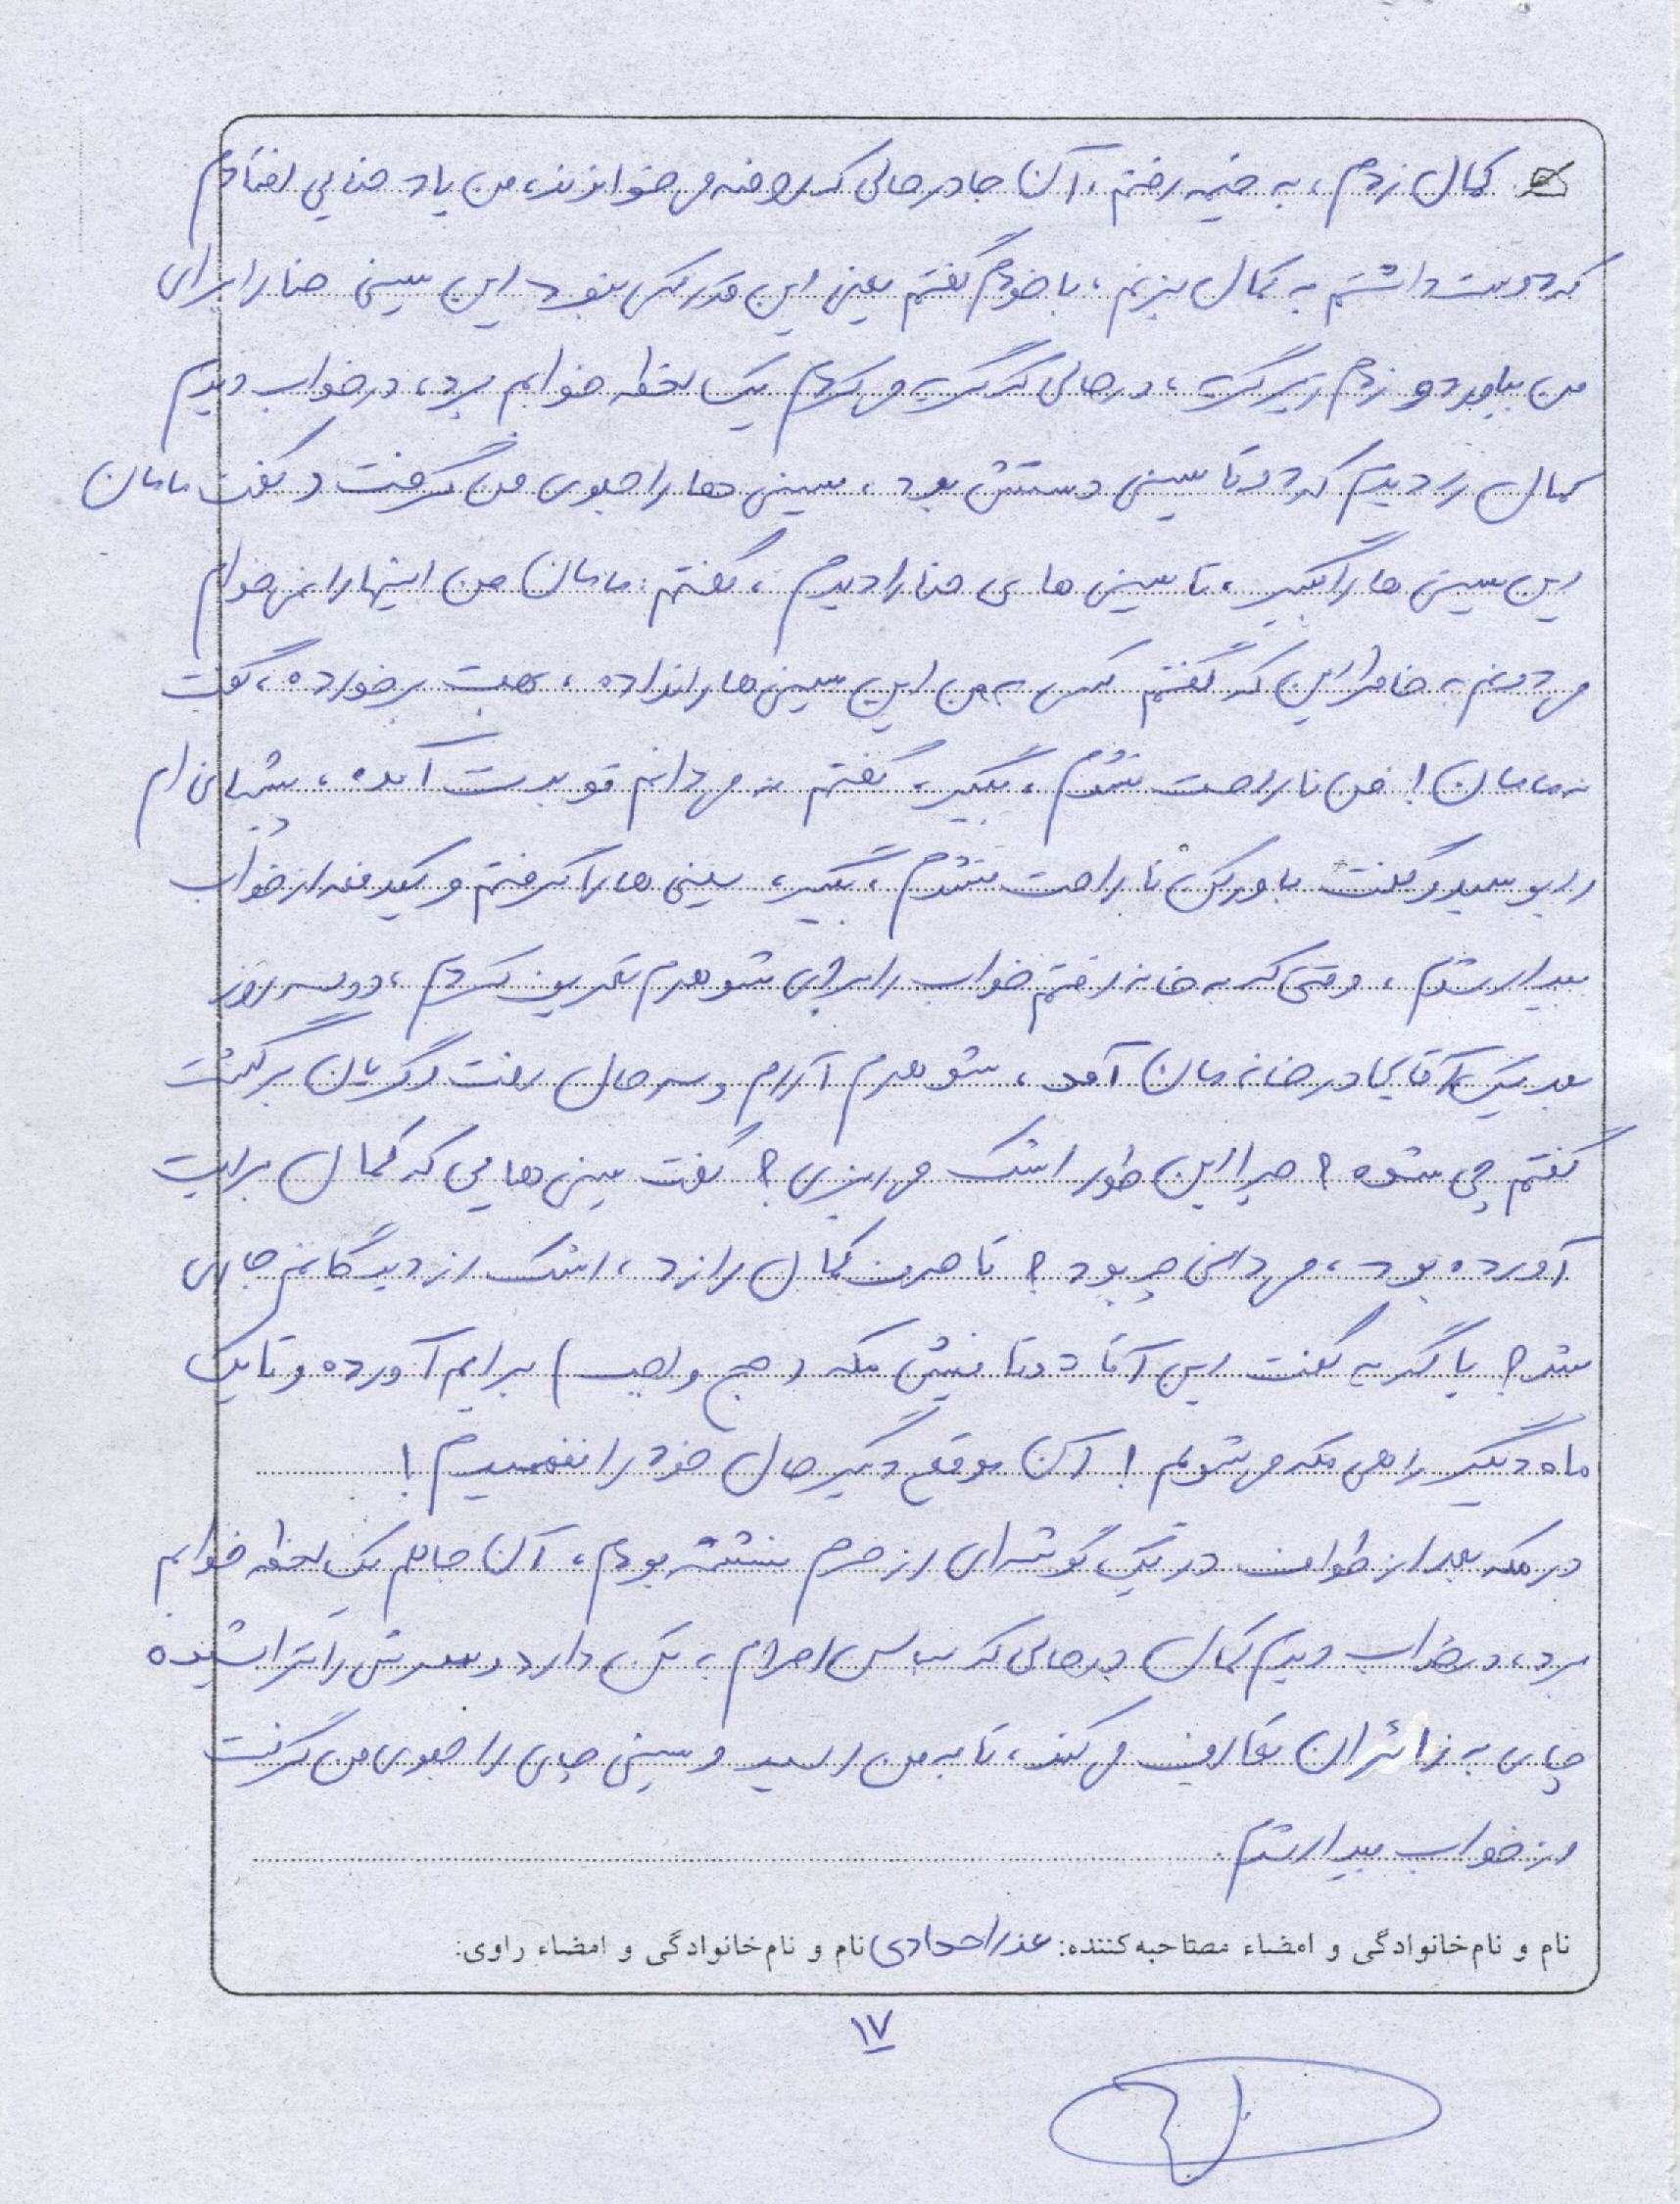 کمال زدم، به خیمه رفتم، آن جا در حالی که روضه می خواندند، من یاد حنایی افتادم
که دوست داشتم به کمال بزنم، با خودم گفتم یعنی این قدر کس نبود این سینی حنا را برای
من بیاورد و زدم زیر گریه، در حالی که گریه می کردم یک لحظه خوابم برد، در خواب دیدم
کمال را دیدم که دو تا سینی دستش بود، سینی ها را جلوی من گرفت و گفت مامان
این سینی ها را بگیر، تا سینی های حنا را دیدم، گفتم: مامان من اینها را نمی خوام
می دونم به خاطر این که گفتم کسی به من این سینی ها را نداده، بهت برخورده، گفت
نه مامان! من ناراحت نشدم، بگیر، گفتم نه می دانم تو بدت آمده، پیشانی ام
را بوسید و گفت باور کن ناراحت نشدم، بگیر، سینی ها را گرفتم و یکدفعه از خواب
بیدار شدم، وقتی که به خانه رفتم خواب را برای شوهرم تعریف کردم، دو سه روز
بعد یک آقایی در خانه مان آمد، شوهرم آرام و سرحال رفت و گریان برگشت
گفتم چی شده؟ چرا این طور اشک می ریزی؟ گفت سینی هایی که کمال برایت
آورده بود، می دانی چه بود؟ تا حرف کمال را زد، اشک از دیدگانم جاری
شد؟ با گریه گفت این آقا دو تا فیش مکه (حج واجب) برایم آورده و تا یک
ماه دیگر راهی مکه می شویم! آن موقع دیگر حال خود را نفهمیدم!
در مکه بعد از طواف در یک گوشه ای از حرم نشسته بودم، آن جا هم یک لحظه خوابم
برد، در خواب دیدم کمال در حالی که لباس احرام به تن دارد و سرش را تراشیده
چای به زائران تعارف می کند، تا به من رسید و سینی چای را جلوی من گرفت
از خواب بیدار شدم.
نام و نام‌خانوادگی و امضاء مصاحبه‌کننده: عذرا حدادی نام و نام‌خانوادگی و امضاء راوی:
۱۷